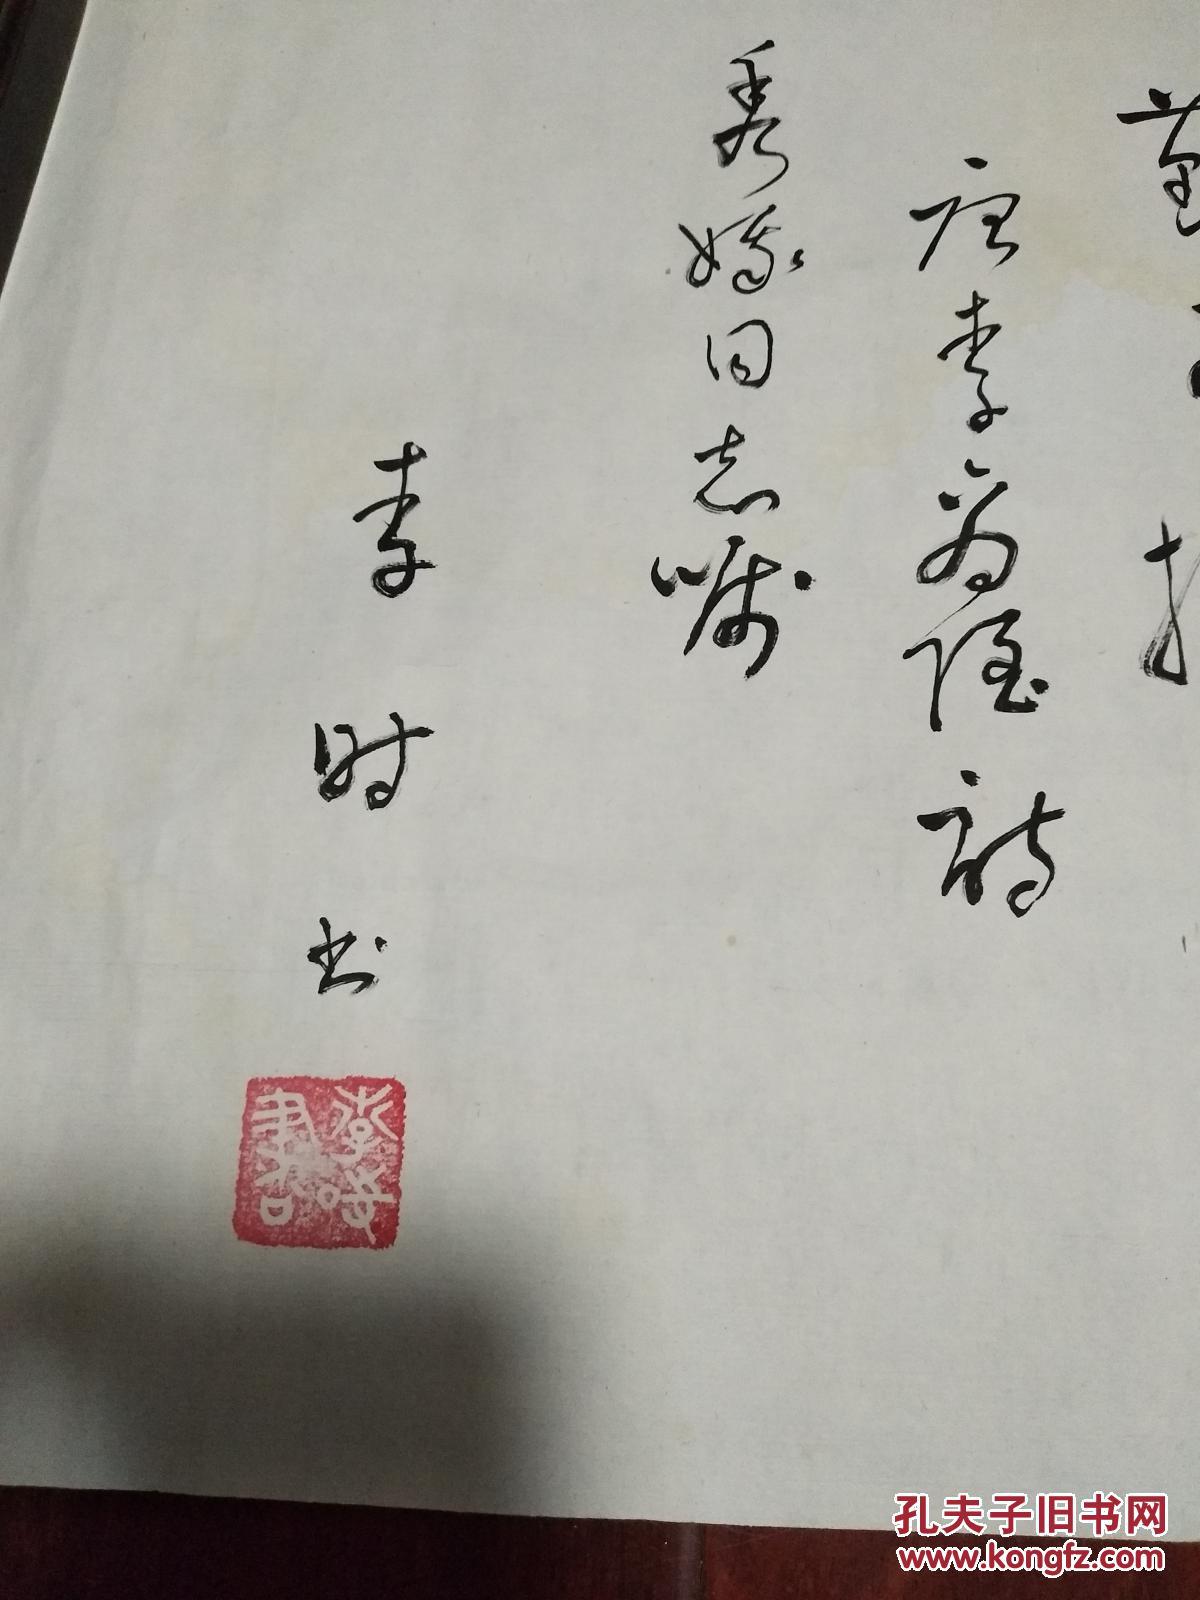 唐李商隐诗
秀娥同志嘱
李时书
孔夫子旧书网
www.kongfz.com